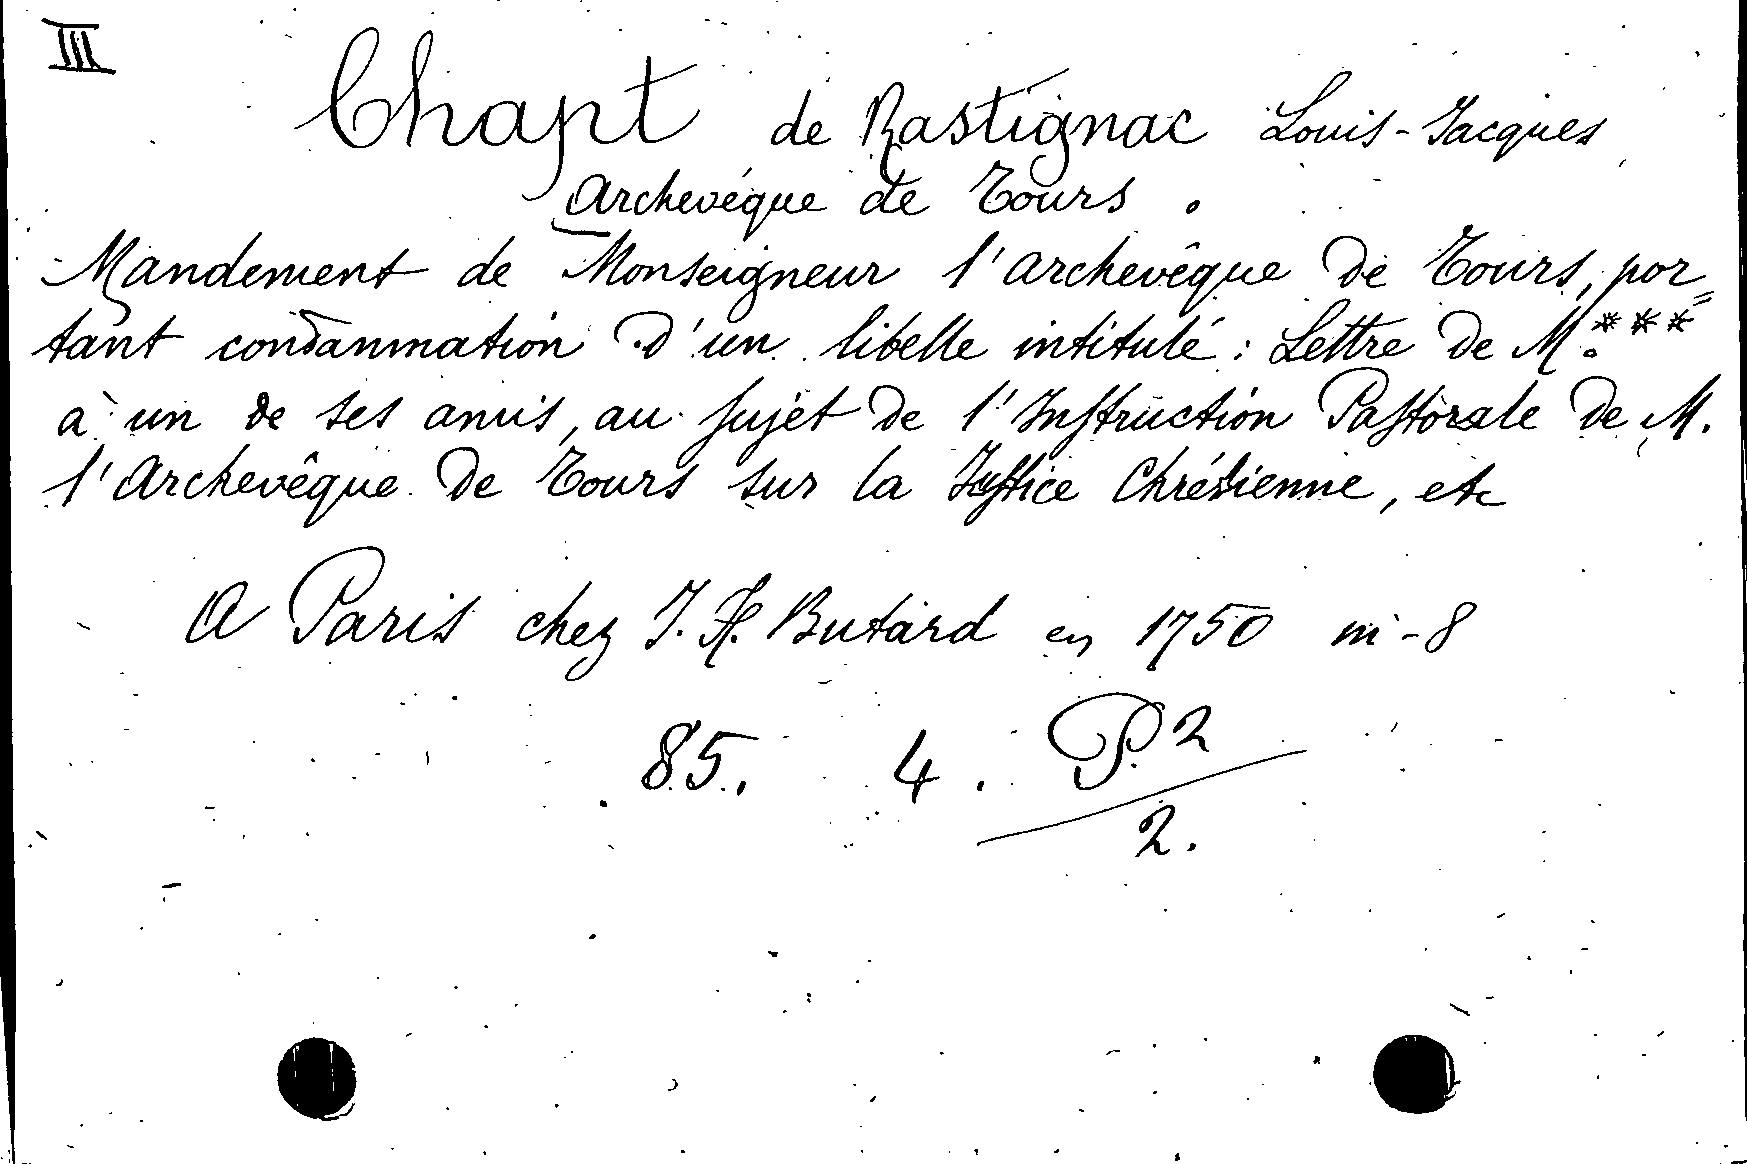 III
Chapt de Rastignac Louis-Jacques
Archevêque de Tours.
Mandement de Monseigneur l'archevêque de Tours, por=
tant condamnation d'un libelle intitulé : Lettre de M.***
à un de ses amis, au sujet de l'Instruction Pastorale de M.
l'Archevêque de Tours sur la Justice Chrétienne, etc
A Paris chez J. H. Butard en 1750 in-8
85. 4. P.2
2.